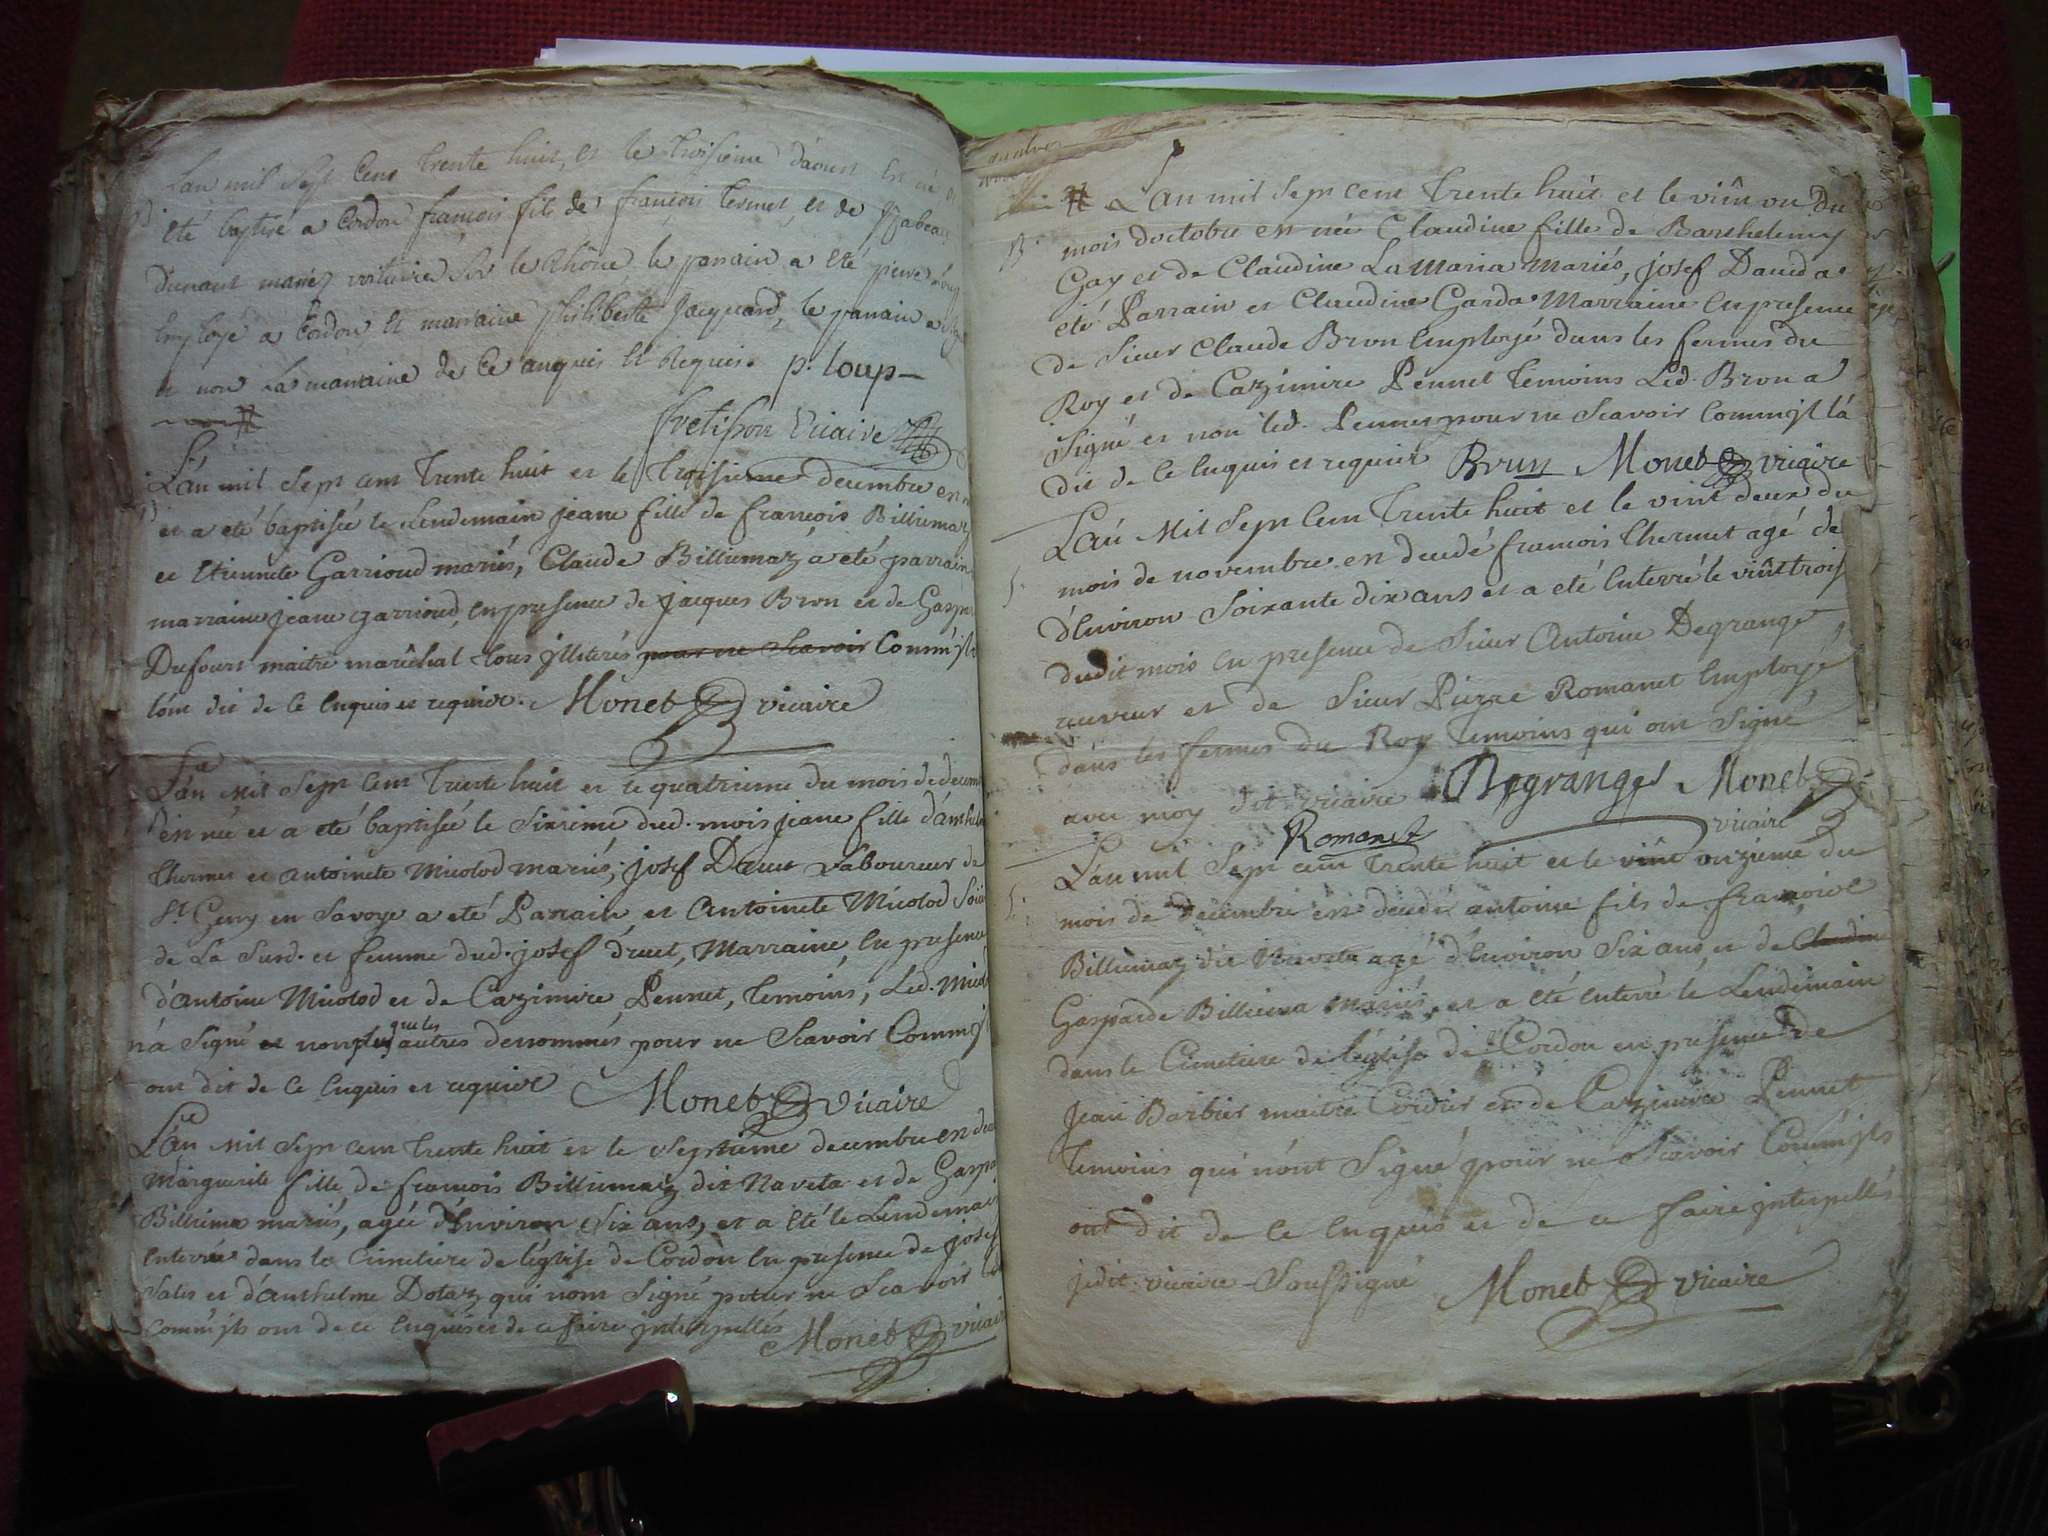 L'an mil sept cent trente huit, et le troisieme d'aoust est né et
été baptisé a Cordon françois fils de françois termet et de
Dunant mariez voiturier sur le Rhône le parrain a été pierre
Employé a Cordon et marraine philiberte Jacquard, le parrain a
et non la marraine de ce enquis et Requis. p. loup
vicaire
L'an mil sept cent trente huit et le troisieme decembre en née
et a eté baptisée le Lendemain jeane fille de françois Billiemaz
et Etiennete Garrioud mariés, Claude Billiemaz a eté parrain
marraine jeane garrioud, en presence de jacques Bron et de Gasp
Dufours maitre marêchal tous jlliterés pour ne Scavoir Comm'jls
l'ont dit de ce enquis et requier. Monet vicaire
L'an Mil Sept Cent trente huit et le quatrieme du mois de decem
en née et a eté baptisée le Sixieme dud. mois jeane fille d'anthel
thermet et antoinete Micolod mariés; josef Druet Laboureur de
St. Geny en Savoye a eté Parrain, et Antoinete Micolod Soeur
de La Susd. et femme dud. josef druet, Marraine, en presence
d'antoine Micolod et de Cazimire Pennet, temoins, Led. Micolod
n'a Signé et non plus que les autres denommés pour ne Scavoir Comm'j
ont dit de ce enquis et requier Monet vicaire
L'an Mil Sept cent trente huit et le Septieme decembre en deced
Marguerite fille de francois Billiemaz dit Naveta et de Gaspa
Billiema mariés, agée d'Environ Six ans, et a eté le Lendemain
enterrée dans le Cimetiere de l'églize de Cordon en presence de josef
Sales et d'anthelme Dotaz qui n'ont Signé pour ne Scavoir
Comm'jls ont de ce enquis et de ce faire jnterpellés Monet vicaire
L'an mil Sept cent trente huit et le vint un du
mois d'octobre en née Claudine fille de Barthelemy
Gay et de Claudine La Maria Mariés, josef David a
eté Parrain et Claudine Garda Marraine en presence
de Sieur Claude Bron Employé dans les fermes du
Roy et de Cazimire Pennet temoins Led. Bron a
Signé et non led. Pennet pour ne Scavoir Comm'jl l'a
dit de ce enquis et requier Brun Monet vicaire
L'an Mil Sept Cent trente huit et le vint deux du
mois de novembre en decedé francois thermet agé de
d'Environ Soixante dix ans et a eté Enterré le vint trois
dudit mois en presence de Sieur Antoine Degrange
receveur et de Sieur Pierre Romanet Employé
dans les fermes du Roy temoins qui ont Signé
avec moy dit vicaire Degranges Monet
Romanet vicaire
L'an mil Sept cent trente huit et le vint onzieme du
mois de decembre en decedé antoine fils de francois
Billiemaz dit Naveta agé d'Environ Six ans et de Claudine
Gasparde Billiema Mariés, et a eté enterré le Lendemain
dans le Cimetiere de l'églize de Cordon en presence de
Jean Barbier maitre Cordier et de Cazimire Pennet
temoins qui n'ont Signé pour ne Scavoir Comm'jls
ont dit de ce enquis et de ce faire jnterpellés
jedit vicaire Soussigné Monet vicaire